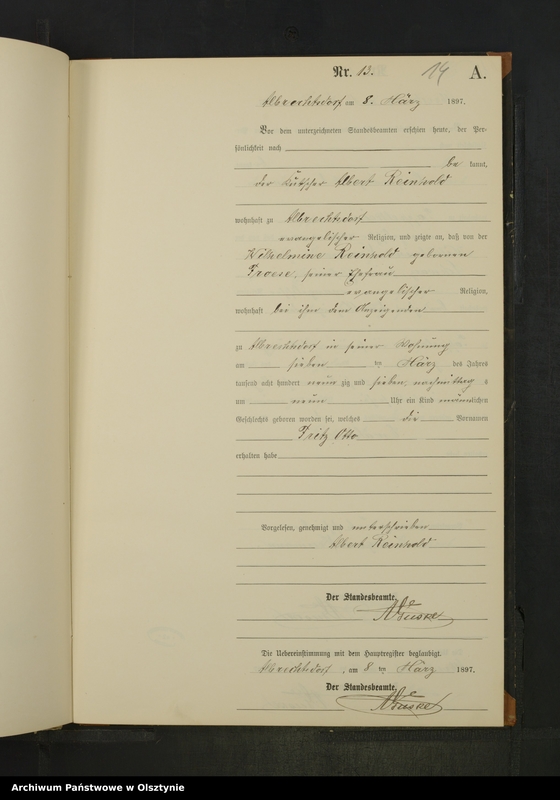 Nr. 13. 14 A.
Albrechtsdorf am 8. März 1897.
Vor dem unterzeichneten Standesbeamten erschien heute, der Per-
sönlichkeit nach
be kannt,
der Kutscher Albert Reinhold
wohnhaft zu Albrechtsdorf
evangelischer Religion, und zeigte an, daß von der
Wilhelmine Reinhold geborenen
Froese, seiner Ehefrau
evangelischer Religion,
wohnhaft bei ihm dem Anzeigenden
zu Albrechtsdorf in seiner Wohnung
am sieben ten März des Jahres
tausend acht hundert neun zig und sieben, nachmittag s
um neun Uhr ein Kind männlichen
Geschlechts geboren worden sei, welches die Vornamen
Fritz Otto
erhalten habe
Vorgelesen, genehmigt und unterschrieben
Albert Reinhold
Der Standesbeamte.
Die Uebereinstimmung mit dem Hauptregister beglaubigt.
Albrechtsdorf, am 8 ten März 1897.
Der Standesbeamte.
Archiwum Państwowe w Olsztynie